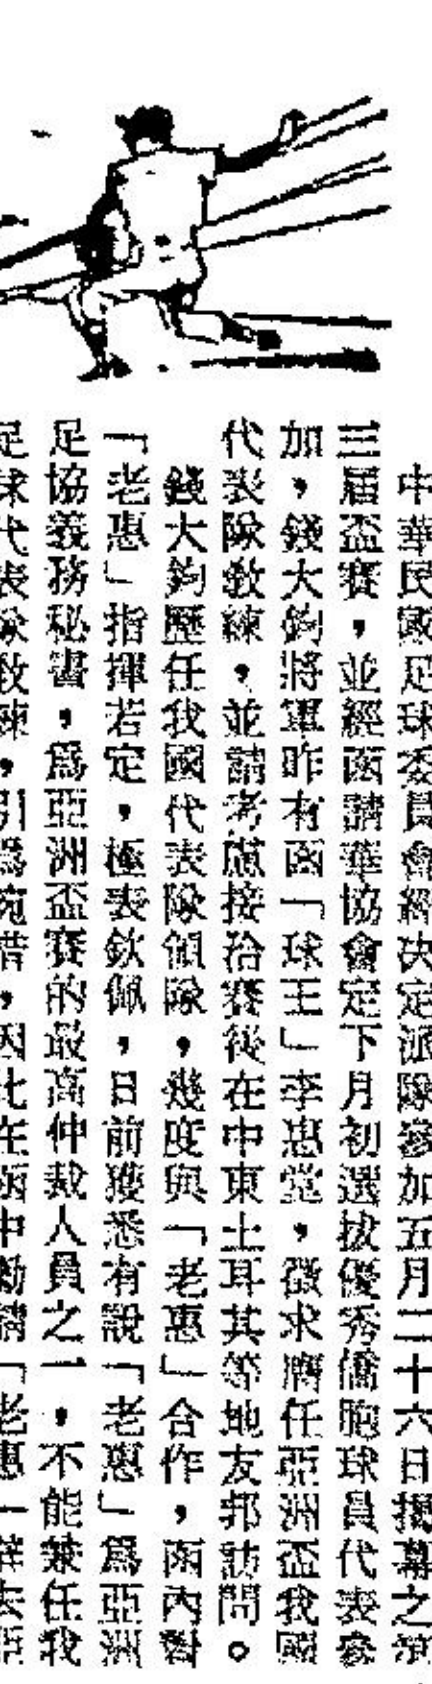 中華民國足球委員會經決定派隊參加五月二十六日揭幕之第
三屆盃賽，並經函請華協會定下月初選拔優秀僑胞球員代表參
加，錢大鈞將軍昨有函「球王」李惠堂，徵求膺任亞洲盃我國
代表隊敎練，並請考慮接洽賽後在中東土耳其等地友邦訪問。
錢大鈞歷任我國代表隊領隊，幾度與「老惠」合作，函內對
「老惠」指揮若定，極表欽佩，日前獲悉有說「老惠」爲亞洲
足協義務秘書，爲亞洲盃賽的最高仲裁人員之一，不能兼任我
足球代表隊敎練，引爲惋惜，因此在函中勸請「老惠」辭去亞